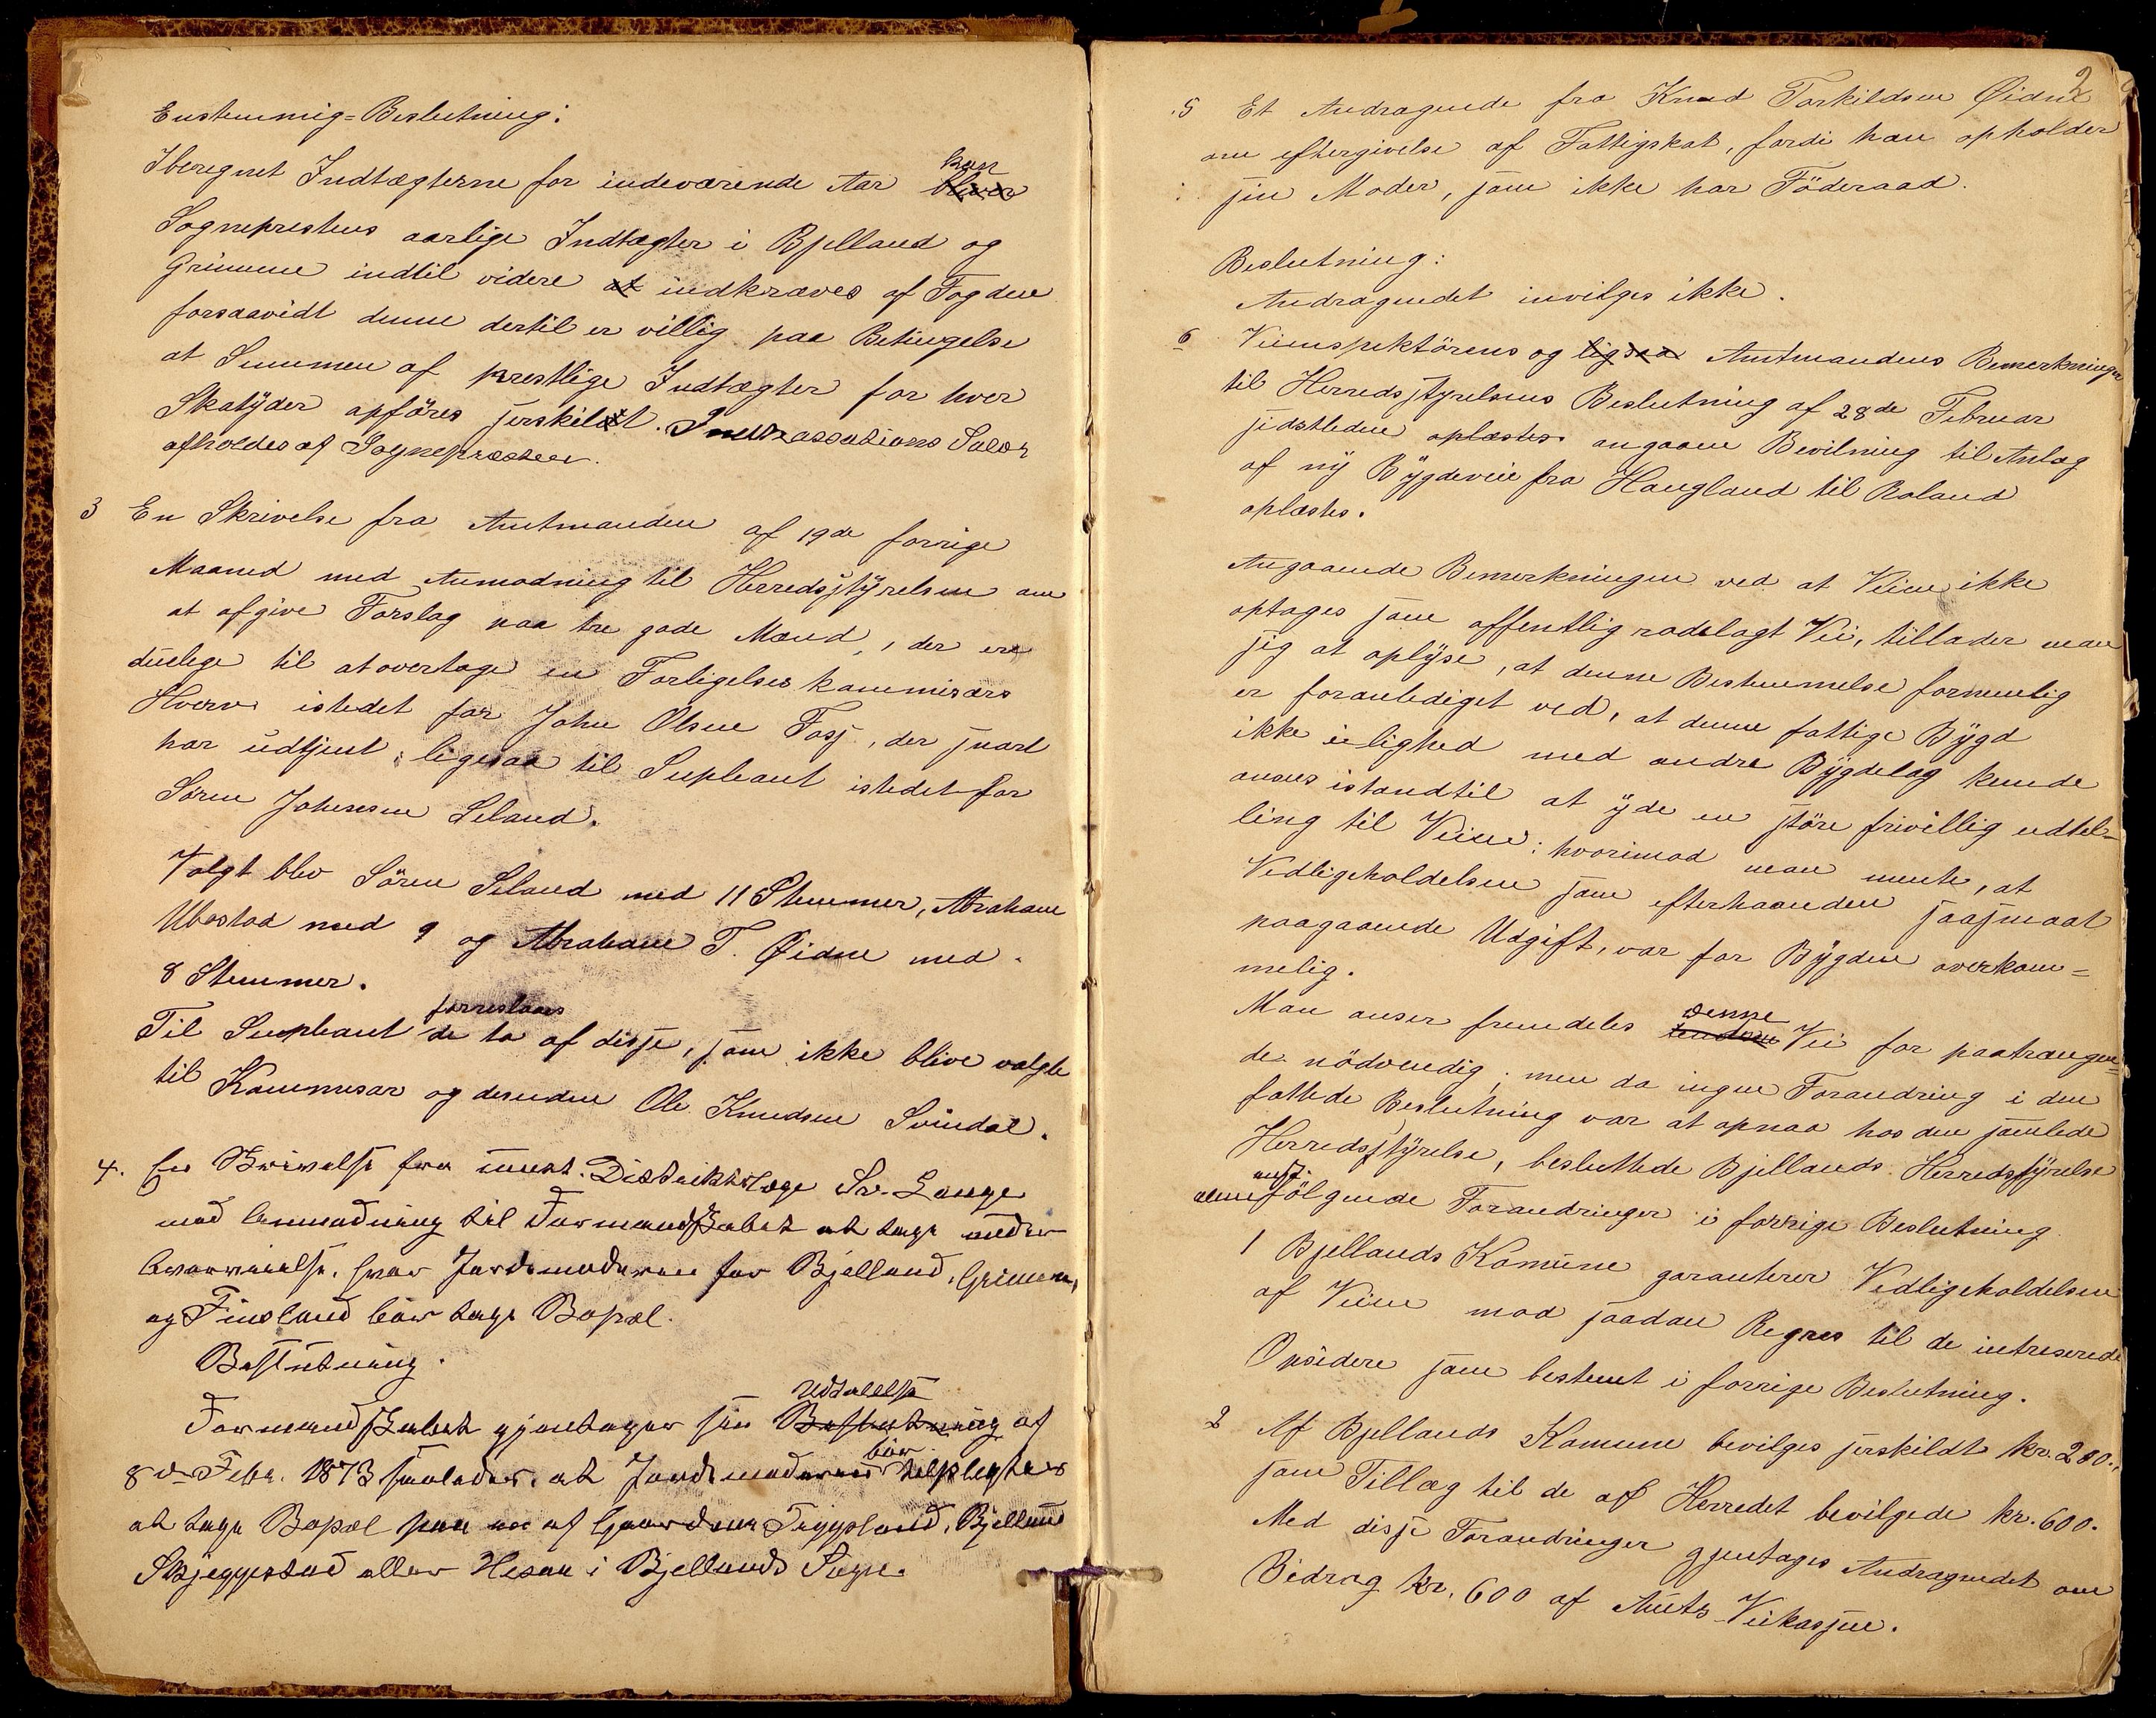 Enstemmig=Beslutning:
Iberegnet Indtægterne for indeværende Aar bliver kan
Sogneprestens aarlige Indtægter i Bjelland og
Grimme indtil videre at indkræves af Fogden
forsaavidt denne dertil er villig paa Betingelse
at Summen af prestlige Indtægter for hver
Skatyder opføres serskildt. Incassations Salær
afholdes af Sognepræsten.
3 En Skrivelse fra Amtmanden af 19de forrige
Maaned med Anmodning til Herredsstyrelsen om
at afgive Forslag paa tre gode Mænd, der ere
duelige til at overtage en Forligelseskommisærs
Hverv istedet for John Olsen Fosj, der snart
har udtjent; ligesaa til Supleant istedet for
Søren Johnsen Seland.
Valgt blev Sören Seland med 11 Stemmer, Abraham
Ubostad med 9 og Abraham T. Øidne med
8 Stemmer.
Til Supleant forreslaaes de to af disse, som ikke blive valgte
til Kommisær og desuden Ole Knudsen Svindal.
4. En Skrivelse fra const. Distriktslæge Sr. Lange
med Anmodning til Formandskabet at tage under
Overveielse, hvor Jordemoderen for Bjelland, Grimme,
og Finsland bör tage Bopæl.
Beslutning.
Formandskabet gjentager sin Beslutning Udtalelse af
8de Febr. 1873 saaledes, at Jordemoderen bör tilpligtes
at tage Bopæl paa en af Gaardene Trygsland, Bjelland
Skjeggestad eller Hesaa i Bjellands Sogn.
2
5 Et Andragende fra Knud Torkildsen Øidne
om eftergivelse af Fattigskat, fordi han opholder
sin Moder, som ikke har Föderaad.
Beslutning:
Andragendet invilges ikke.
6 Veiinspektörens og ligesaa Amtmandens Bemerkninger
til Herredsstyrelsens Beslutning af 28de Februar
sidstleden oplæstes angaaen Bevilning til Anlæg
af ny Bygdevei fra Haugland til Roland
oplæstes.
Angaaende Bemerkningen ved at Veien ikke
optages som offentlig rodelagt Vei, tillader man
sig at oplyse, at denne Bestemmelse fornemlig
er foranlediget ved, at denne fattige Bygd
ikke i lighed med andre Bygdelag kunde
ansees istandtil at yde en störe frivillig udtel=
ling til Veien: hvorimod man mente, at
Vedligeholdelsen som efterhaanden saasmaat
paagaaende Udgift, var for Bygden overkom=
melig.
Man anser fremdeles denne Vei for paatrængen=
de nödvendig; men da ingen Forandring i den
fattede Beslutning var at opnaa hos den samlede
Herredsstyrelse, besluttede Bjellands Herredsstyrelse
følgende Forandringer i forrige Beslutning
1 Bjellands Komune garanterer Vedligeholdelsen
af Veien mod saadan Regres til de intreserede
Opsidere som bestemt i forrige Beslutning.
2 Af Bjellands Komune bevilges serskildt kr. 280.,
som Tillæg til de af Herredet bevilgede kr. 600.
Med disse Forandringer gjentages Andragendet om
Bidrag kr. 600 af Amts-Veikassen.